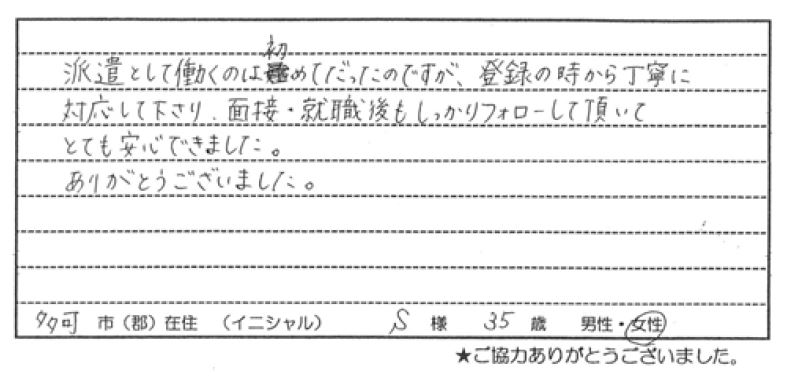 派遣として働くのは初めてだったのですが、登録の時から丁寧に
対応して下さり、面接・就職後もしっかりフォローして頂いて
とても安心できました。
ありがとうございました。
多可 市（郡）在住 （イニシャル） S 様 35 歳 男性・女性
★ご協力ありがとうございました。